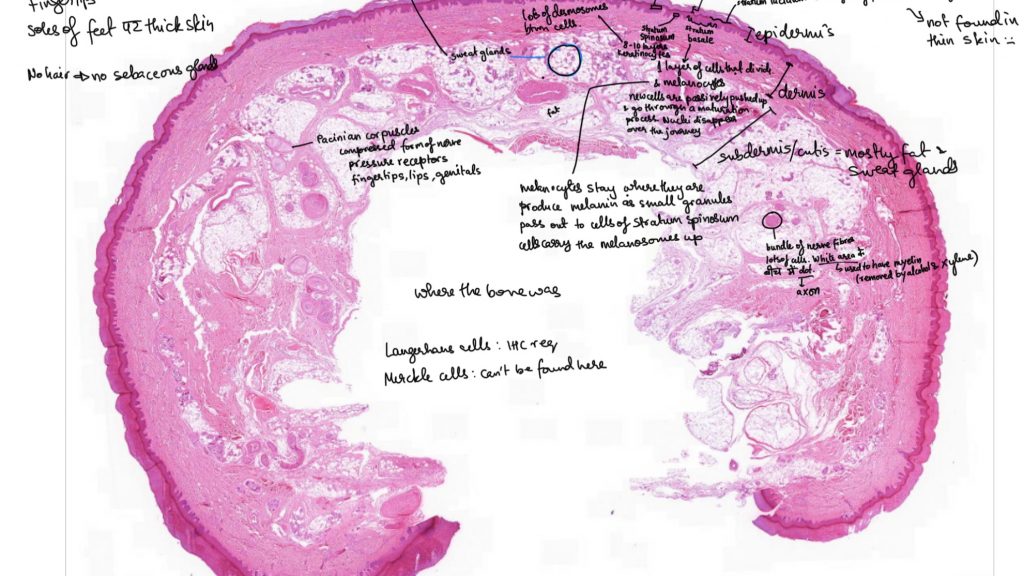 fingertips
soles of feet
thick skin
No hair → no sebaceous glands
sweat glands
lots of desmosomes
btwn cells
Stratum
Spinosum
8-10 layers
Keratinocytes
stratum
basale
1 layer of cells that divide
& melanocytes
new cells are passively pushed up
& go through a maturation
process. Nuclei disappear
over the journey
]epidermis
not found in
thin skin
dermis
fat
Pacinian corpuscles
compressed form of nerve
pressure receptors
fingertips, lips, genitals
subdermis/cutis = mostly fat &
sweat glands
melanocytes stay where they are
produce melanin as small granules
pass out to cells of Stratum spinosum
cells carry the melanosomes up
bundle of nerve fibres
lots of cells. White area
dot
↳ used to have myelin
(removed by alcohol & xylene)
↓
axon
where the bone was
Langerhans cells : IHC req
Merckle cells : can't be found here